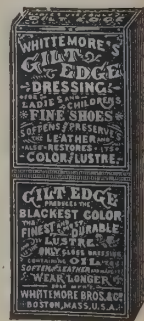 WHITTEMORE'S
GILT
EDGE
DRESSING
FOR
LADIES AND CHILDREN'S
FINE SHOES
SOFTENS AND PRESERVES
THE LEATHER AND
ALSO RESTORES ITS
COLOR & LUSTRE.
GILT EDGE
PRODUCES THE
BLACKEST COLOR
THE FINEST AND MOST DURABLE
LUSTRE.
ONLY GLOSS DRESSING
CONTAINING OIL
SOFTENS LEATHER AND MAKES IT
WEAR LONGER
WHITTEMORE BROS. & CO.
BOSTON, MASS. U.S.A.